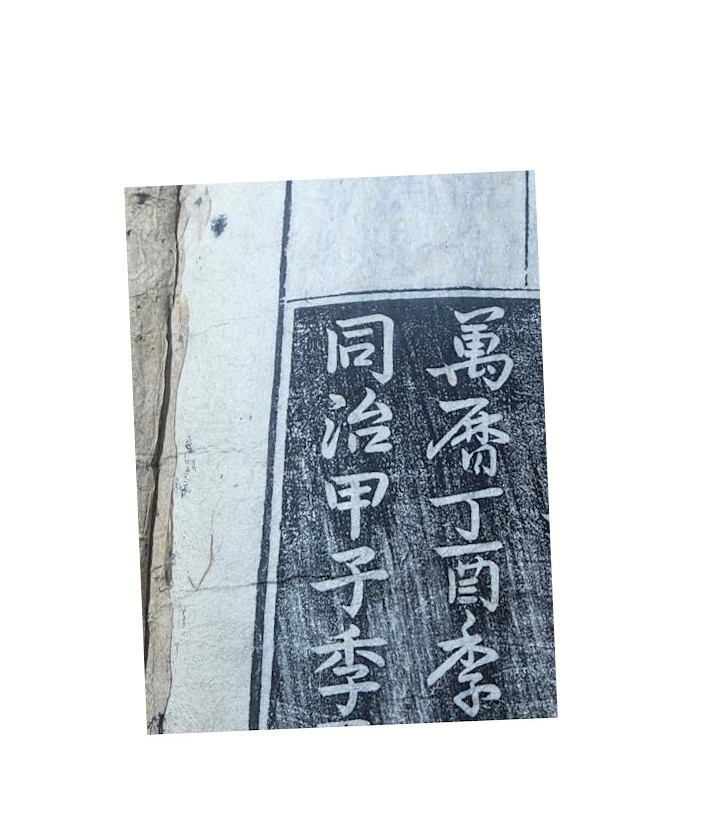 萬曆丁酉季
同治甲子季